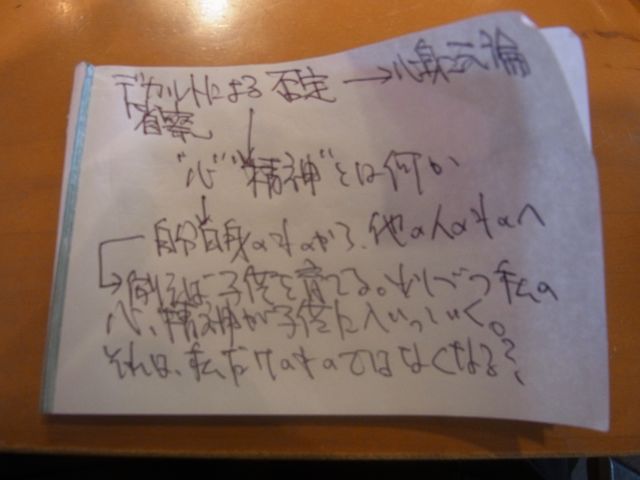 デカルトによる否定→心身二元論
省察
"心""精神"とは何か
自分自身のものから、他の人のものへ
例えば子供を育てる。少しづつ私の
心、精神が子供に入っていく。
それは、私だけのものではなくなる?